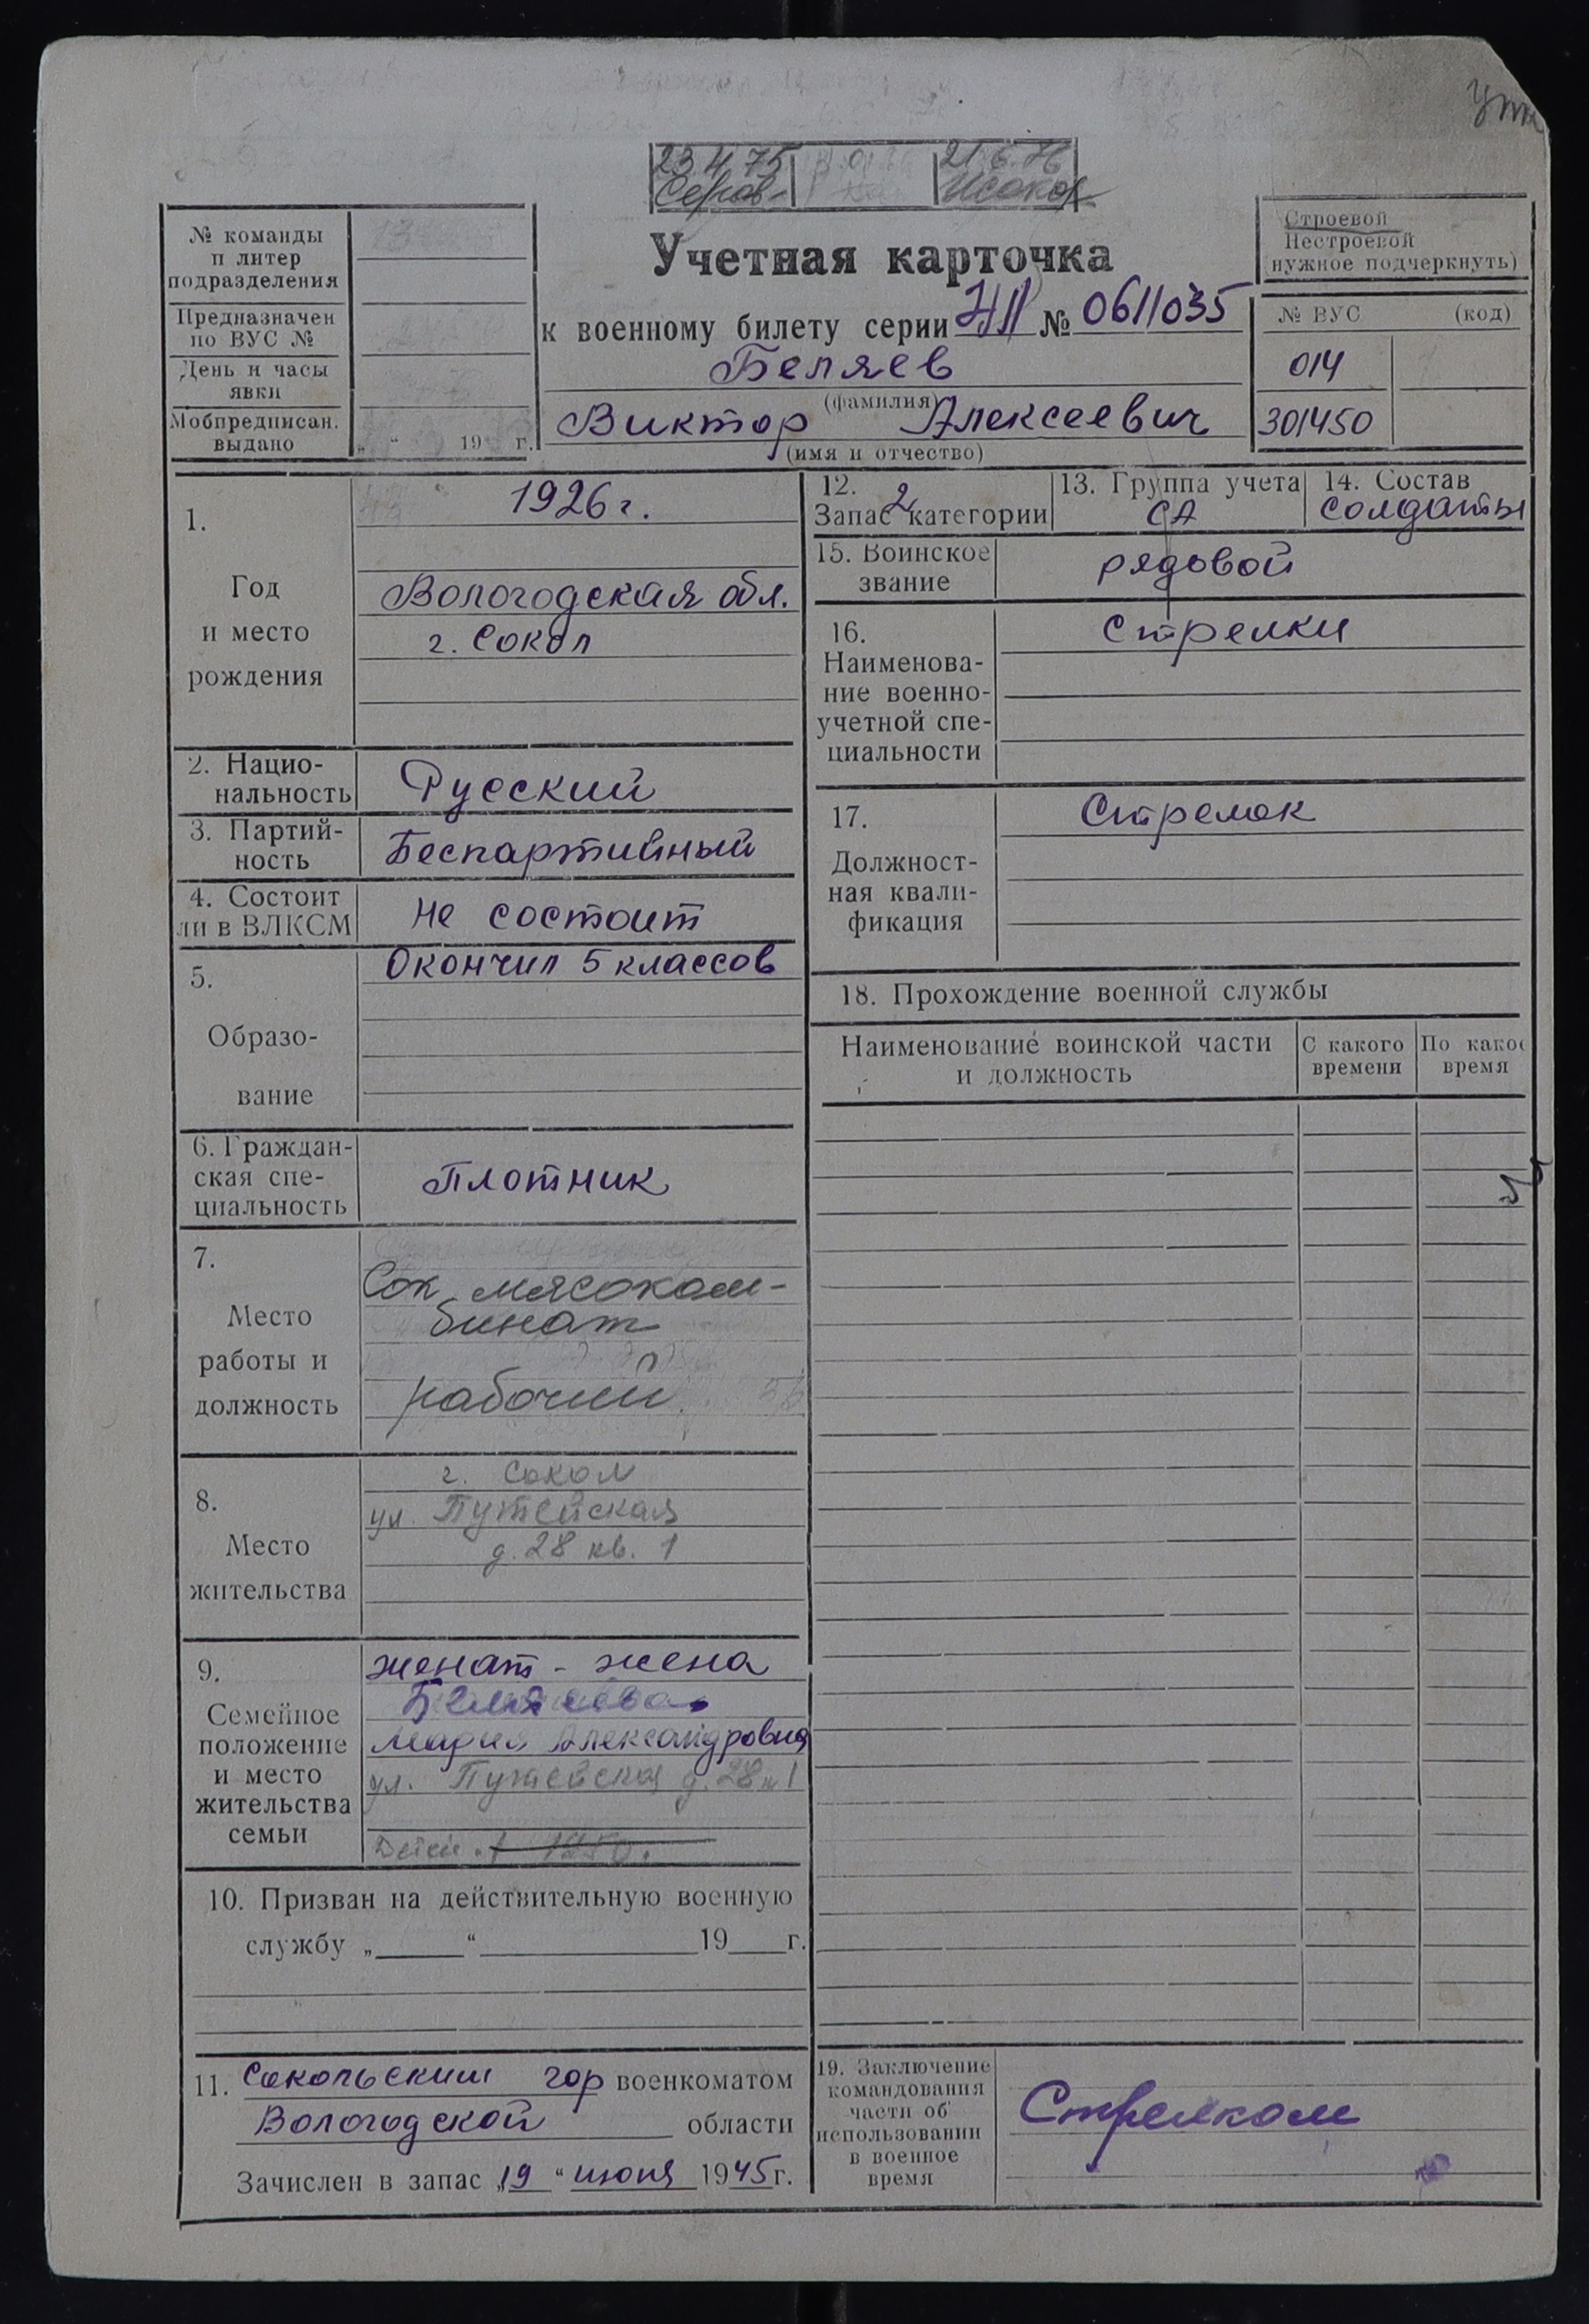 23 4 75
21.6.76
№ команды
п литер
подразделения
Предназначен
по ВУС №
День и часы
явки
Мобпредписан.
выдано
„ “ 19 г.
Учетная карточка
к военному билету серии НП № 0611035
Беляев
(фамилия)
Виктор Алексеевич
(имя и отчество)
Строевой
Нестроевой
(нужное подчеркнуть)
№ ВУС (код)
014
301450
1.
Год
и место
рождения
1926 г.
Вологодская обл.
г. Сокол
2. Нацио-
нальность
Русский
3. Партий-
ность
Беспартийный
4. Состоит
ли в ВЛКСМ
Не состоит
5.
Образо-
вание
Окончил 5 классов
6. Граждан-
ская спе-
циальность
Плотник
7.
Место
работы и
должность
Сок мясоком-
бинат
рабочий
8.
Место
жительства
г. Сокол
ул. Путейская
д. 28 кв. 1
9.
Семейное
положение
и место
жительства
семьи
женат - жена
Беляева
Мария Александровна
ул. Путейская д. 28 1
Детей 1 1950.
10. Призван на действительную военную
службу „ “ 19 г.
11. Сокольским гор военкоматом
Вологодской области
Зачислен в запас „19 “ июня 1945 г.
12. 2
Запас категории
13. Группа учета
СА
14. Состав
солдаты
15. Воинское
звание
рядовой
16.
Наименова-
ние военно-
учетной спе-
циальности
Стрелки
17.
Должност-
ная квали-
фикация
Стрелок
18. Прохождение военной службы
Наименование воинской части
и должность
С какого
времени
По какое
время
19. Заключение
командования
части об
использовании
в военное
время
Стрелком